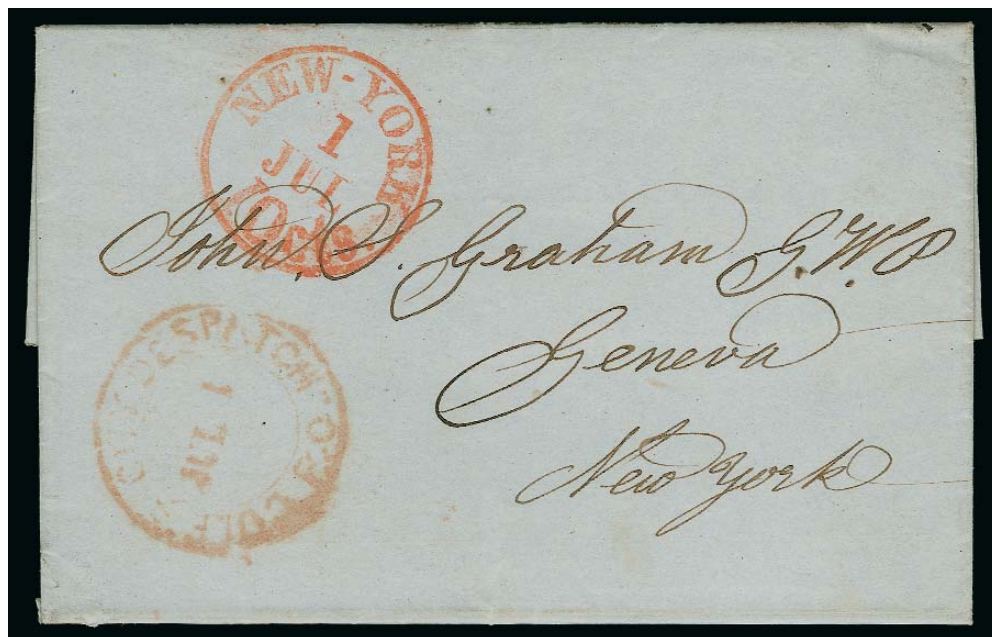 NEW-YORK
1
JUL
10cts
John. S. Graham G.W.P
Geneva
New York
DESPATCH PO
1
JUL